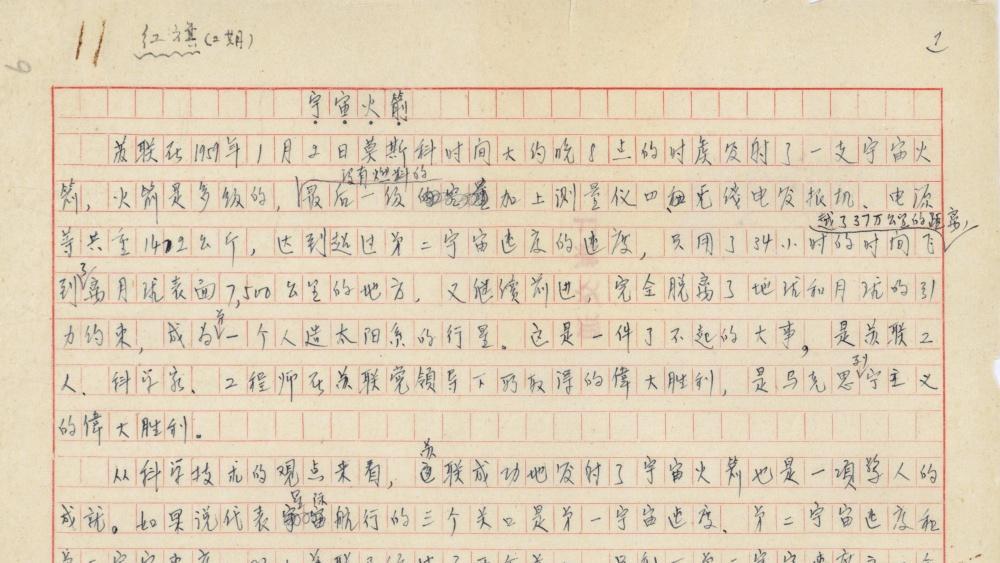 11 红旗(2期) 1
9
宇宙火箭
苏联在1959年1月2日莫斯科时间大约晚8点的时候发射了一支宇宙火
没有燃料的
箭,火箭是多级的,最后一级加上测量仪四和无线电发报机、电源
越了37万公里的距离
等共重1472公斤,达到超过第二宇宙速度的速度,只用了34小时的时间飞
到了离月球表面7,500公里的地方,又继续前进,完全脱离了地球和月球的引
力约束,成为第一个人造太阳系的行星。这是一件了不起的大事,是苏联工
人、科学家、工程师在苏联党领导下所取得的偉大胜利,是马克思列宁主义
的偉大胜利。
苏
从科学技术的观点来看,联成功地发射了宇宙火箭也是一项惊人的
星际
成就。如果说代表航行的三个关口是第一宇宙速度、第二宇宙速度和